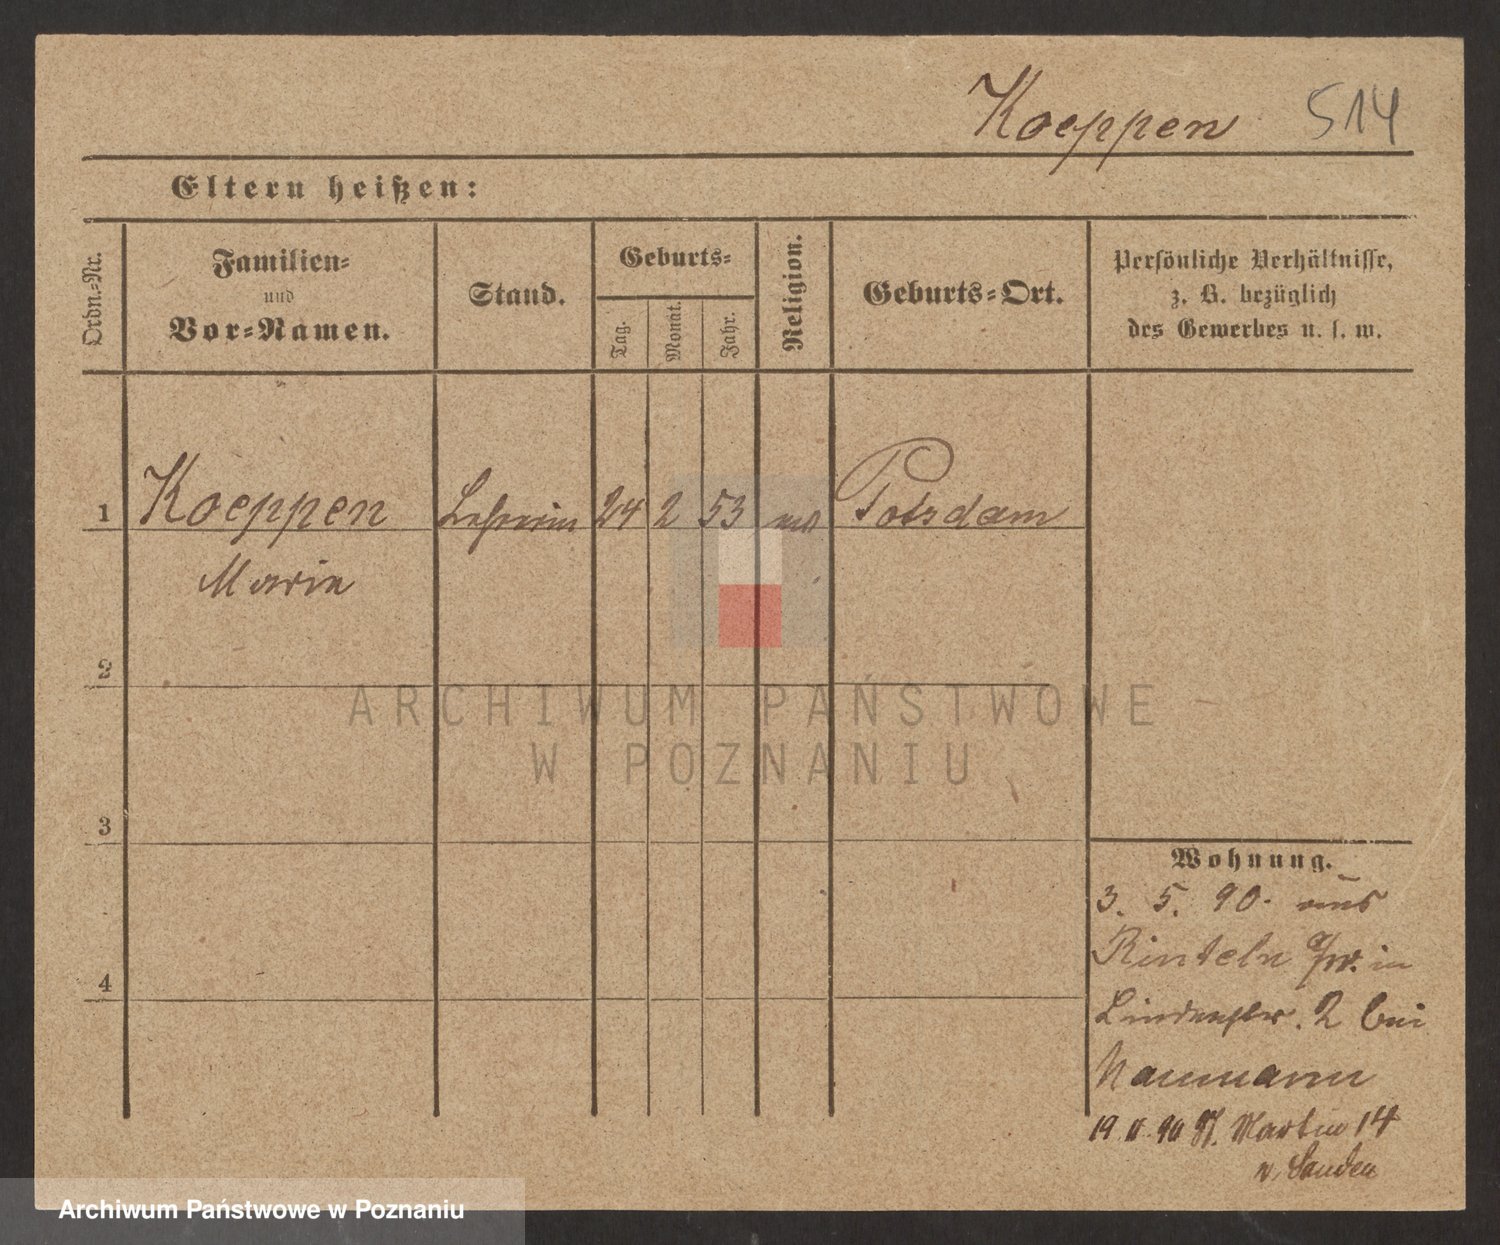 Koeppen 514
Eltern heißen:
Ordn.-Nr.
Familien-
und
Vor-Namen.
Stand.
Geburts-
Tag.
Monat.
Jahr.
Religion.
Geburts-Ort.
Persönliche Verhältnisse,
z. B. bezüglich
des Gewerbes u. s. w.
1 Koeppen Lehrerin 24 2 53 ev Potsdam
Marie
2
3
4
Wohnung.
3. 5. 90. aus
Rinteln in
Lindenstr. 2 bei
Naumann
19 90 St. Martin 14
v. Sanden
ARCHIWUM PAŃSTWOWE
W POZNANIU
Archiwum Państwowe w Poznaniu